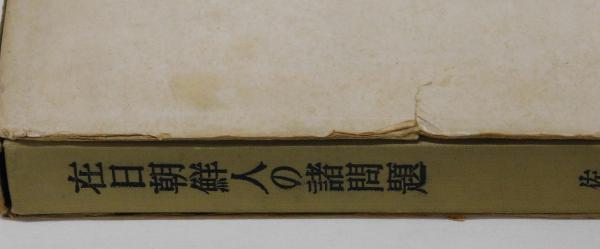 在日朝鮮人の諸問題
佐